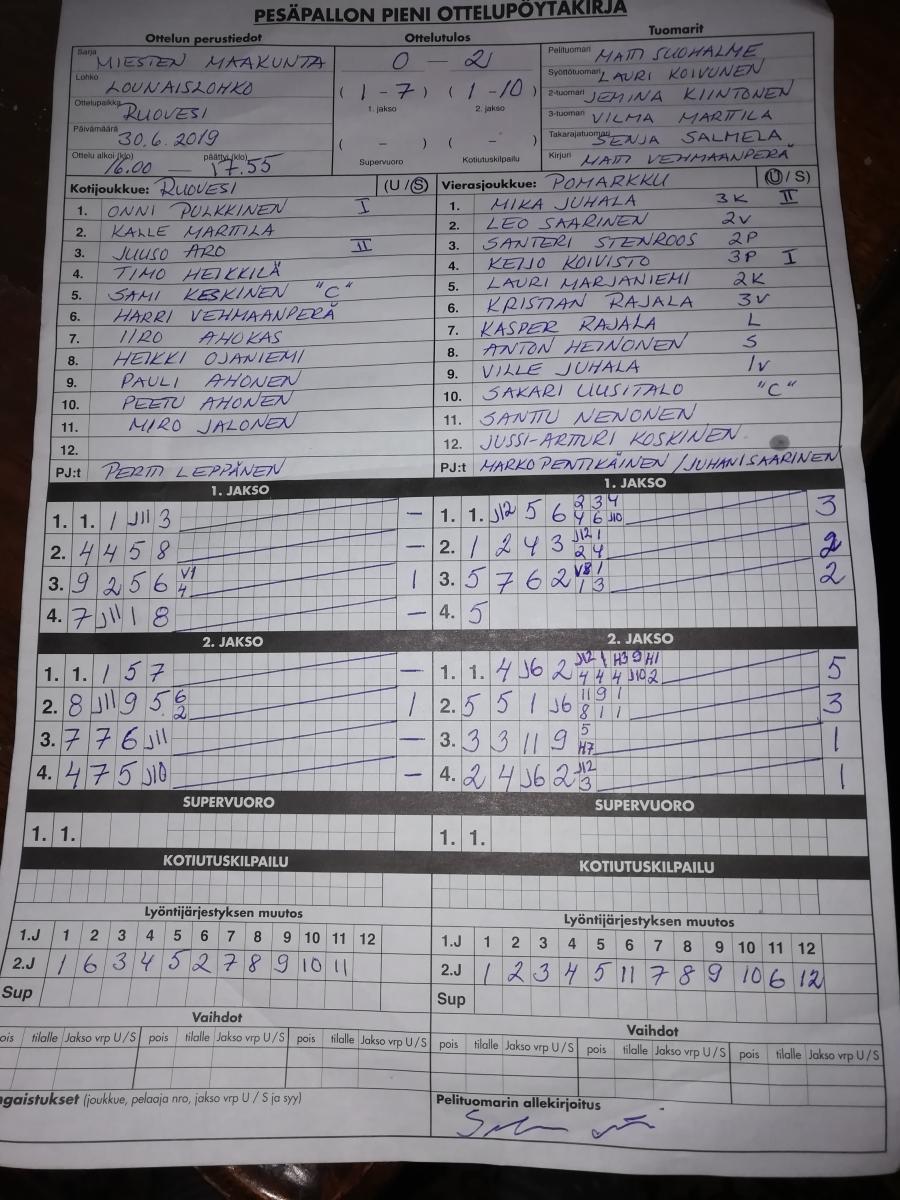 PESÄPALLON PIENI OTTELUPÖYTÄKIRJA
Ottelun perustiedot
Sarja MIESTEN MAAKUNTA
Lohko LOUNAISLOHKO
Ottelupaikka RUOVESI
Päivämäärä 30.6.2019
Ottelu alkoi (klo) 16.00 — päättyi (klo) 17.55
Ottelutulos
0 — 2
( 1 - 7 ) ( 1 - 10 )
1. jakso 2. jakso
( - ) ( - )
Supervuoro Kotiutuskilpailu
Tuomarit
Pelituomari MATTI SUOHALME
Syöttötuomari LAURI KOIVUNEN
2-tuomari JEMINA KIINTONEN
3-tuomari VILMA MARTTILA
Takarajatuomari SENJA SALMELA
Kirjuri MATTI VEHMAANPERÄ
Kotijoukkue: RUOVESI (U / S)
1. ONNI PULKKINEN I
2. KALLE MARTTILA
3. JUUSO ARO II
4. TIMO HEIKKILÄ
5. SAMI KESKINEN "C"
6. HARRI VEHMAANPERÄ
7. IIRO AHOKAS
8. HEIKKI OJANIEMI
9. PAULI AHONEN
10. PEETU AHONEN
11. MIRO JALONEN
12.
PJ:t PERTTI LEPPÄNEN
Vierasjoukkue: POMARKKU (U / S)
1. MIKA JUHALA 3K II
2. LEO SAARINEN 2V
3. SANTERI STENROOS 2P
4. KEIJO KOIVISTO 3P I
5. LAURI MARJANIEMI 2K
6. KRISTIAN RAJALA 3V
7. KASPER RAJALA L
8. ANTON HEINONEN S
9. VILLE JUHALA 1V
10. SAKARI UUSITALO "C"
11. SANTTU NENONEN
12. JUSSI-ARTTURI KOSKINEN
PJ:t MARKO PENTIKÄINEN / JUHANI SAARINEN
1. JAKSO
1. 1. 1 J11 3 —
2. 4 4 5 8 —
3. 9 2 5 6 V1 4 1
4. 7 J11 1 8 —
1. JAKSO
1. 1. J12 5 6 2 3 4 4 6 J10 3
2. 1 2 4 3 J12 1 2 4 2
3. 5 7 6 2 V8 1 1 3 2
4. 5
2. JAKSO
1. 1. 1 5 7 —
2. 8 J11 9 5 6 2 1
3. 7 7 6 J11 —
4. 4 7 5 J10 —
2. JAKSO
1. 1. 4 J6 2 J12 1 H3 9 H1 4 4 4 J10 2 5
2. 5 5 1 J6 11 9 1 8 1 1 3
3. 3 3 11 9 5 H7 1
4. 2 4 J6 2 J12 3 1
SUPERVUORO
1. 1.
SUPERVUORO
1. 1.
KOTIUTUSKILPAILU
KOTIUTUSKILPAILU
Lyöntijärjestyksen muutos
1.J 1 2 3 4 5 6 7 8 9 10 11 12
2.J 1 6 3 4 5 2 7 8 9 10 11
Sup
Lyöntijärjestyksen muutos
1.J 1 2 3 4 5 6 7 8 9 10 11 12
2.J 1 2 3 4 5 11 7 8 9 10 6 12
Sup
Vaihdot
ois tilalle Jakso vrp U / S pois tilalle Jakso vrp U / S pois tilalle Jakso vrp U / S
Vaihdot
pois tilalle Jakso vrp U / S pois tilalle Jakso vrp U / S pois tilalle Jakso vrp U / S
ngaistukset (joukkue, pelaaja nro, jakso vrp U / S ja syy)
Pelituomarin allekirjoitus